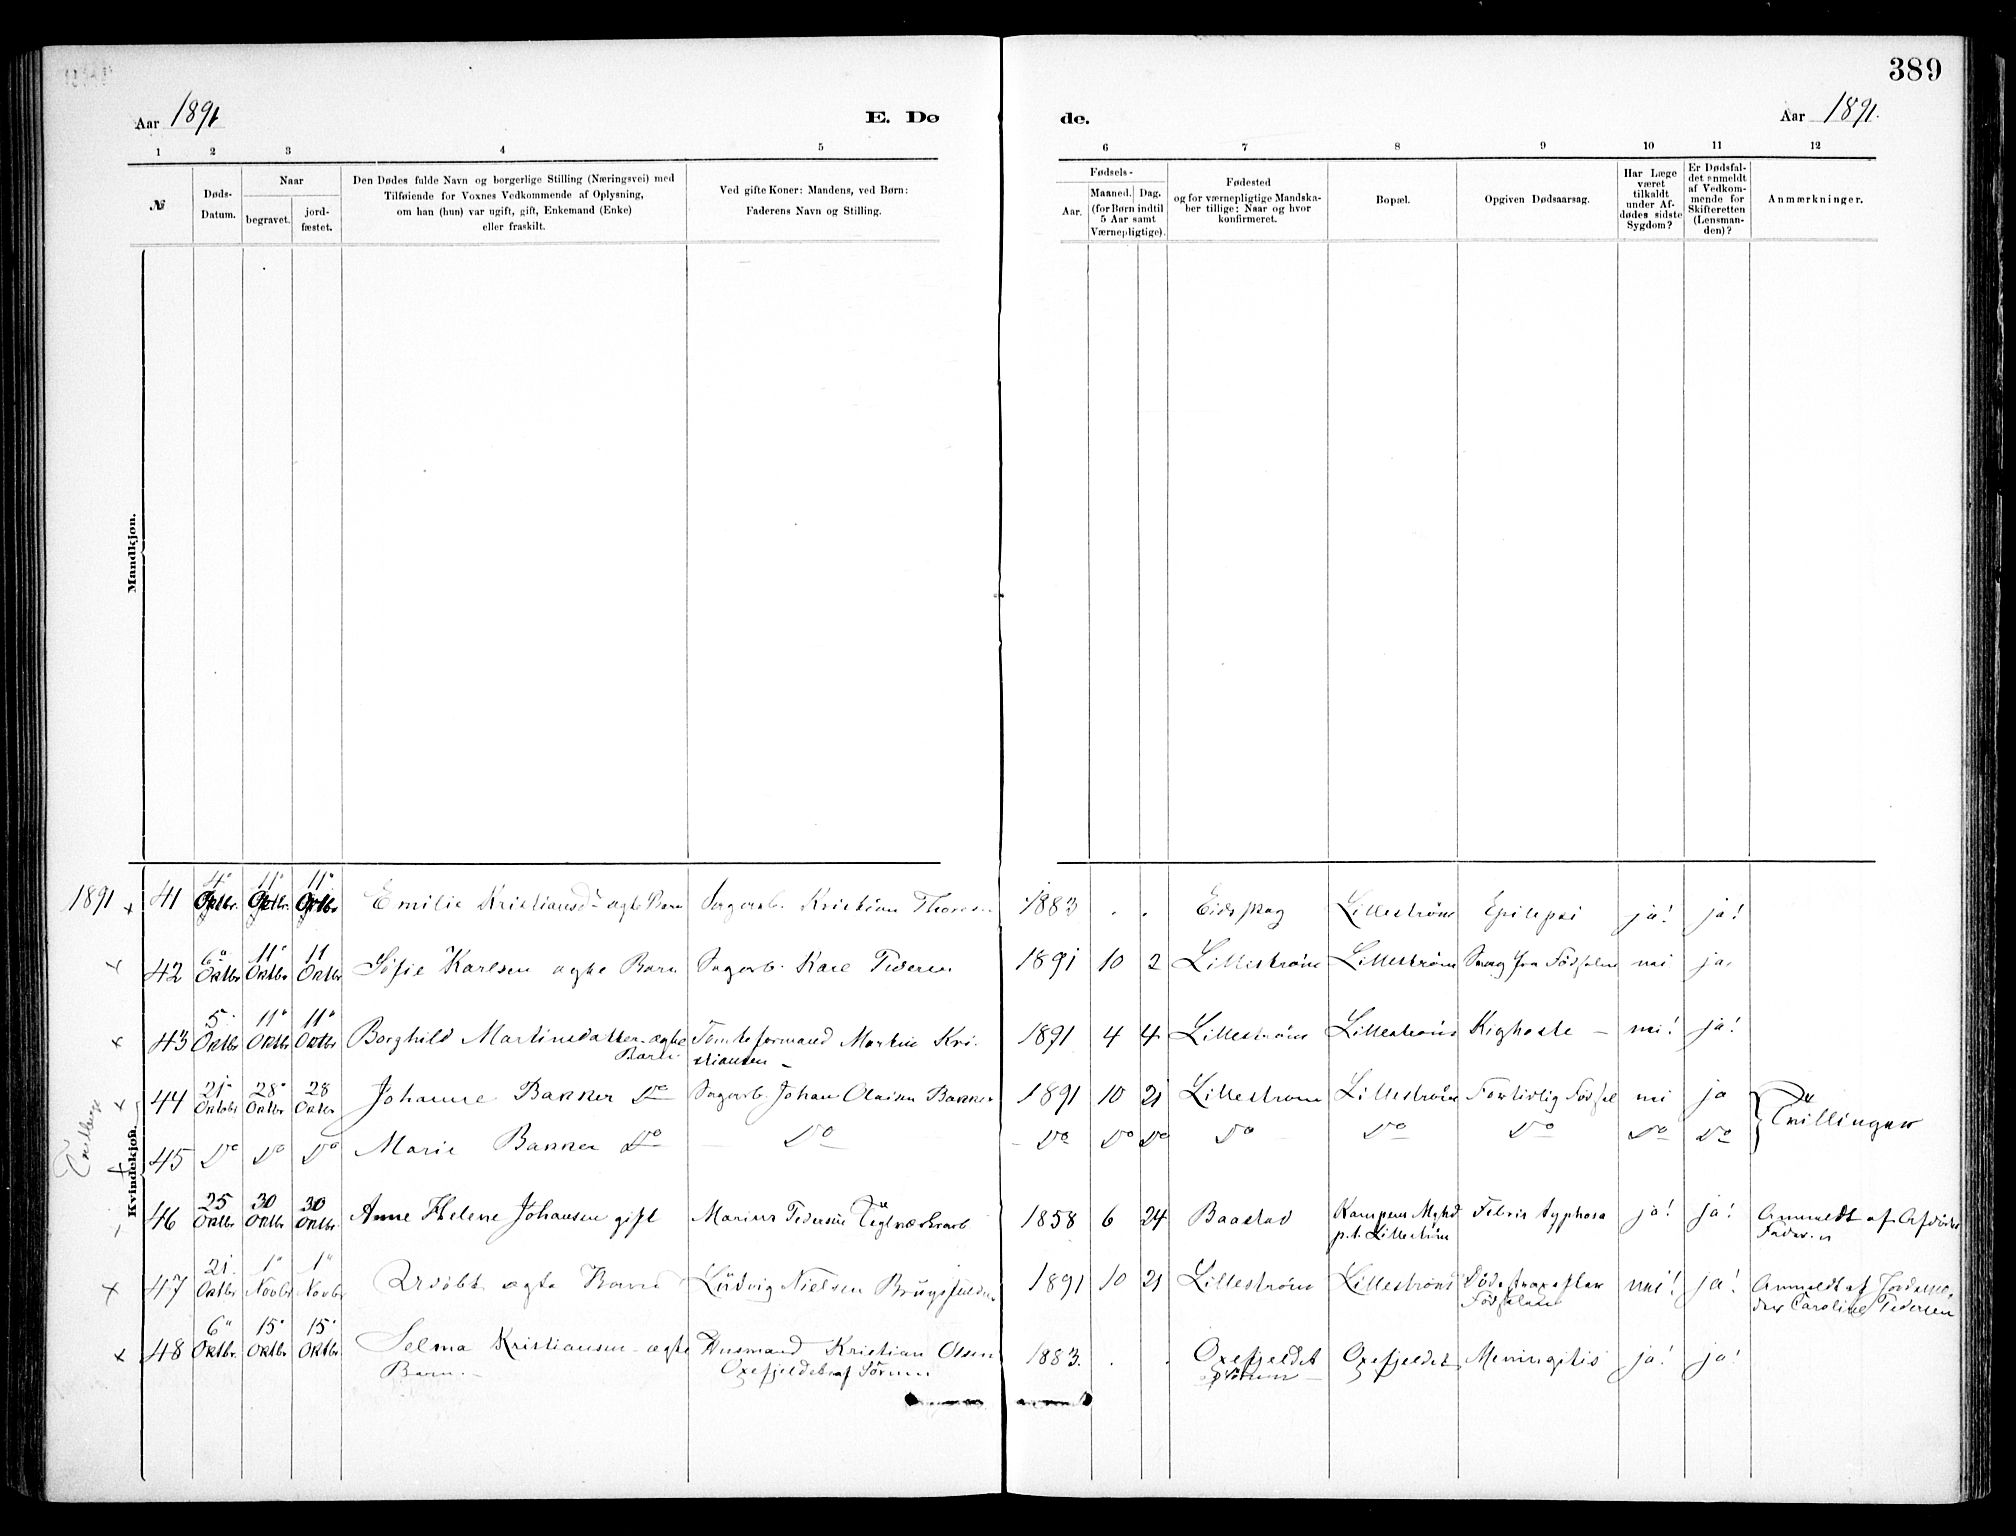 389
Aar 1891
E. Dø
de.
Aar 1891.
1 2 3 4 5 6 7 8 9 10 11 12
№
Døds-
Datum.
Naar
begravet.
jord-
fæstet.
Den Dødes fulde Navn og borgerlige Stilling (Næringsvei) med
Tilføiende for Voxnes Vedkommende af Oplysning,
om han (hun) var ugift, gift, Enkemand (Enke)
eller fraskilt.
Ved gifte Koner: Mandens, ved Børn:
Faderens Navn og Stilling.
Fødsels-
Aar.
Maaned. Dag.
(for Børn indtil
5 Aar samt
Værnepligtige).
Fødested
og for værnepligtige Mandska-
ber tillige: Naar og hvor
konfirmeret.
Bopæl.
Opgiven Dødsaarsag.
Har Læge
været
tilkaldt
under Af-
dødes sidste
Sygdom?
Er Dødsfal-
det anmeldt
af Vedkom-
mende for
Skifteretten
(Lensman-
den)?
Anmærkninger.
Mandkjøn.
Kvindekjøn.
1891 41 4" Oktbr. 11" Oktbr. 11" Oktbr Emilie Kristiansd. ægte Barn Sagarb. Kristian Thoresen 1883 . . Eidskog Lillestrøm Epilepsi ja! ja!
42 6" Oktbr 11" Oktbr 11 Oktbr Sofie Karlsen ægte Barn Sagarb. Karl Pedersen 1891 10 2 Lillestrøm Lillestrøm Svag fra Fødselen nei ja.
43 5" Oktbr 11" Oktbr 11" Oktbr Borghild Martinsdatter ægte Tomteformand Martin Kri-
Barn stiansen 1891 4 4 Lillestrøm Lillestrøm Kighoste nei! ja!
44 21" Oktobr 28" Oktbr 28 Oktbr Johanne Bakker Do Sagarb. Johan Olaisen Bakker 1891 10 21 Lillestrøm Lillestrøm Fortidlig Fødsel nei ja Tvillinger
45 Do Do Do Marie Bakker Do Do Do Do Do Do Do Do Do Do
46 25 Oktbr 30 Oktbr 30 Oktbr Anne Helene Johansen gift Marius Pedersen Teglværksarb 1858 6 24 Baastad Kampens Mghd Febris typhosa ja! ja! Anmeldt af Afdødes
p.t. Lillestrøm Fader.
47 21. Oktbr 1" Novbr 1" Novbr Udøbt ægte Barn Ludvig Nielsen 1891 10 21 Lillestrøm Lillestrøm Døde strax efter nei! ja! Anmeldt af Jordemo-
Fødselen der Caroline Pedersen
48 6" Oktbr. 15" Oktbr 15" Oktbr Selma Kristiansen ægte Husmand Kristian Olsen 1883. . . Oxefjeldet Oxefjeldet Meningitis ja! ja!
Barn. Oxefjeldet af Sørum Sørum